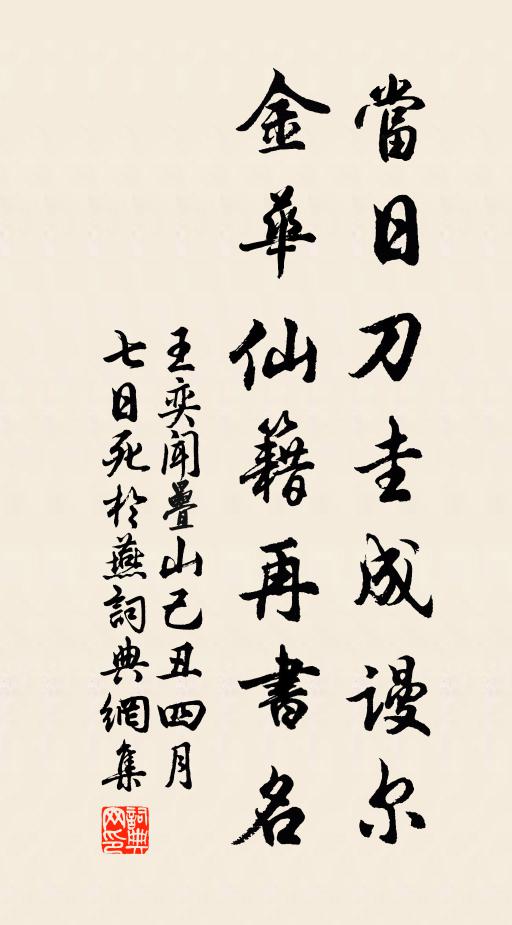 當日刀圭成謾尔
金華仙籍再書名
王奕聞疊山己丑四月
七日死於燕詞典網集
詞典
网印